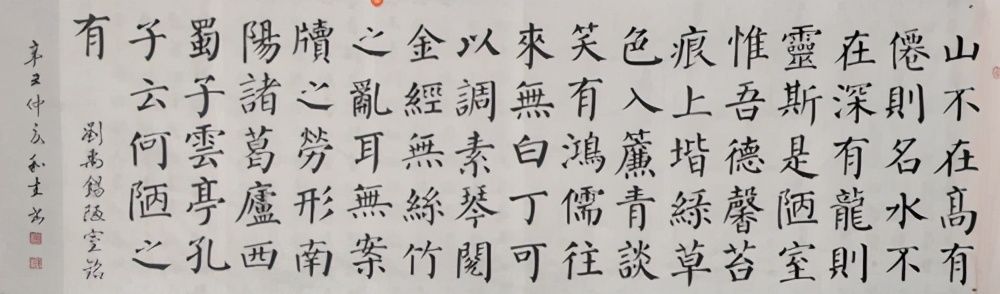 山不在髙有
僊則名水不
在深有龍則
靈斯是陋室
惟吾德馨苔
痕上堦綠草
色入簾青談
笑有鴻儒往
來無白丁可
以調素琴閱
金經無絲竹
之亂耳無案
牘之勞形南
陽諸葛廬西
蜀子雲亭孔
子云何陋之
有
劉禹錫陋室銘
辛丑仲